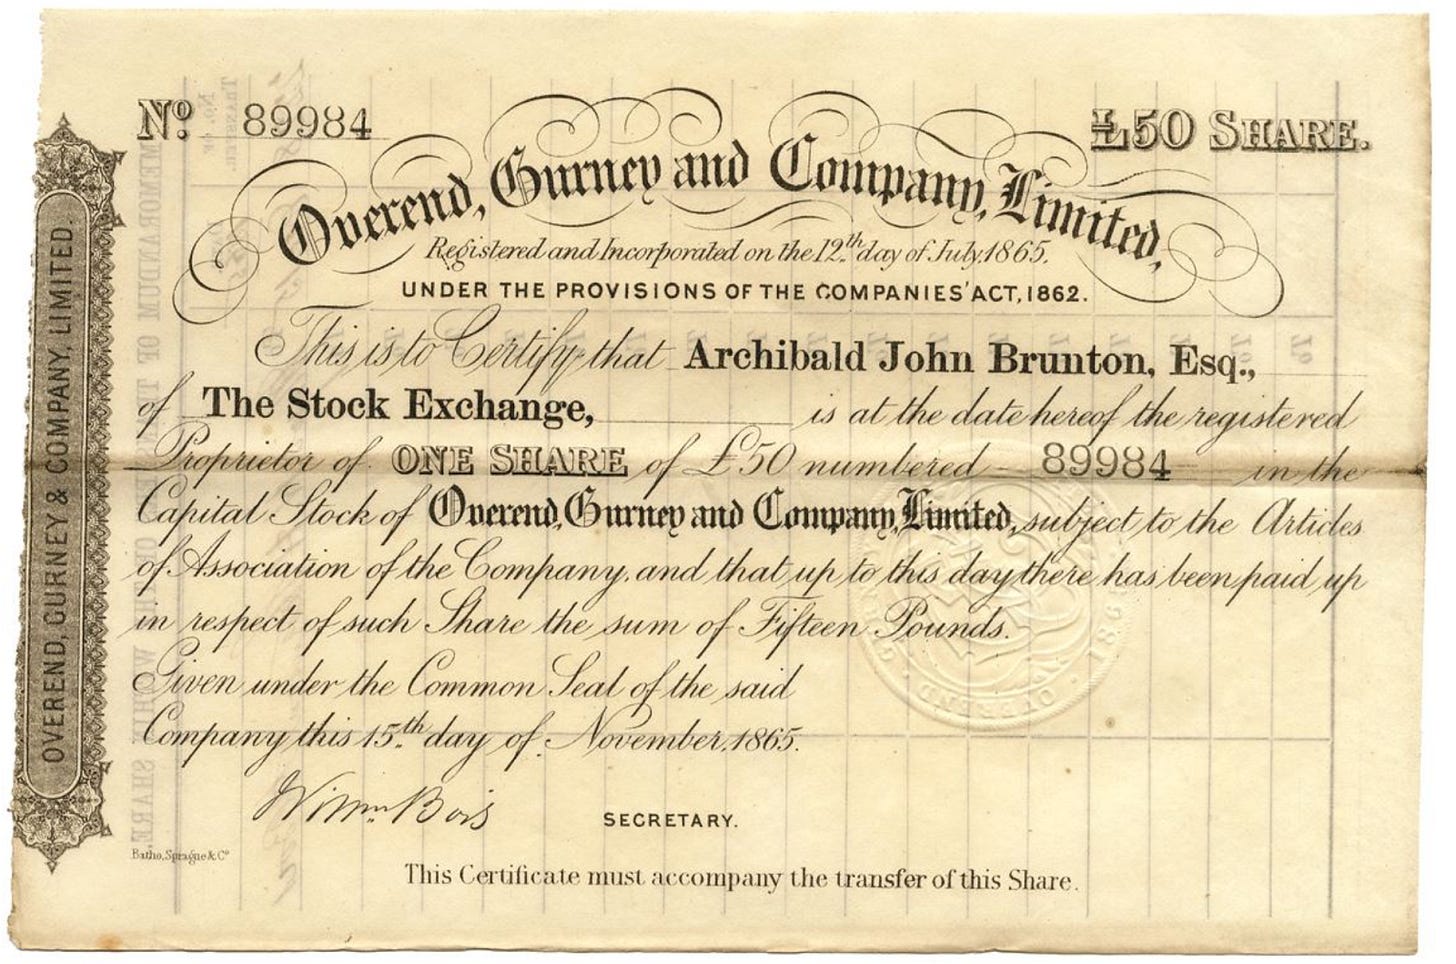 No. 89984
£50 SHARE.
Overend, Gurney and Company, Limited,
Registered and Incorporated on the 12th day of July, 1865,
UNDER THE PROVISIONS OF THE COMPANIES' ACT, 1862.
This is to Certify that Archibald John Brunton, Esq.,
of The Stock Exchange, is at the date hereof the registered
Proprietor of ONE SHARE of £50 numbered 89984 in the
Capital Stock of Overend, Gurney and Company, Limited, subject to the Articles
of Association of the Company, and that up to this day there has been paid up
in respect of such Share the sum of Fifteen Pounds.
Given under the Common Seal of the said
Company this 15th day of November, 1865.
SECRETARY.
Batho, Sprague & Co
This Certificate must accompany the transfer of this Share.
OVEREND, GURNEY & COMPANY, LIMITED.